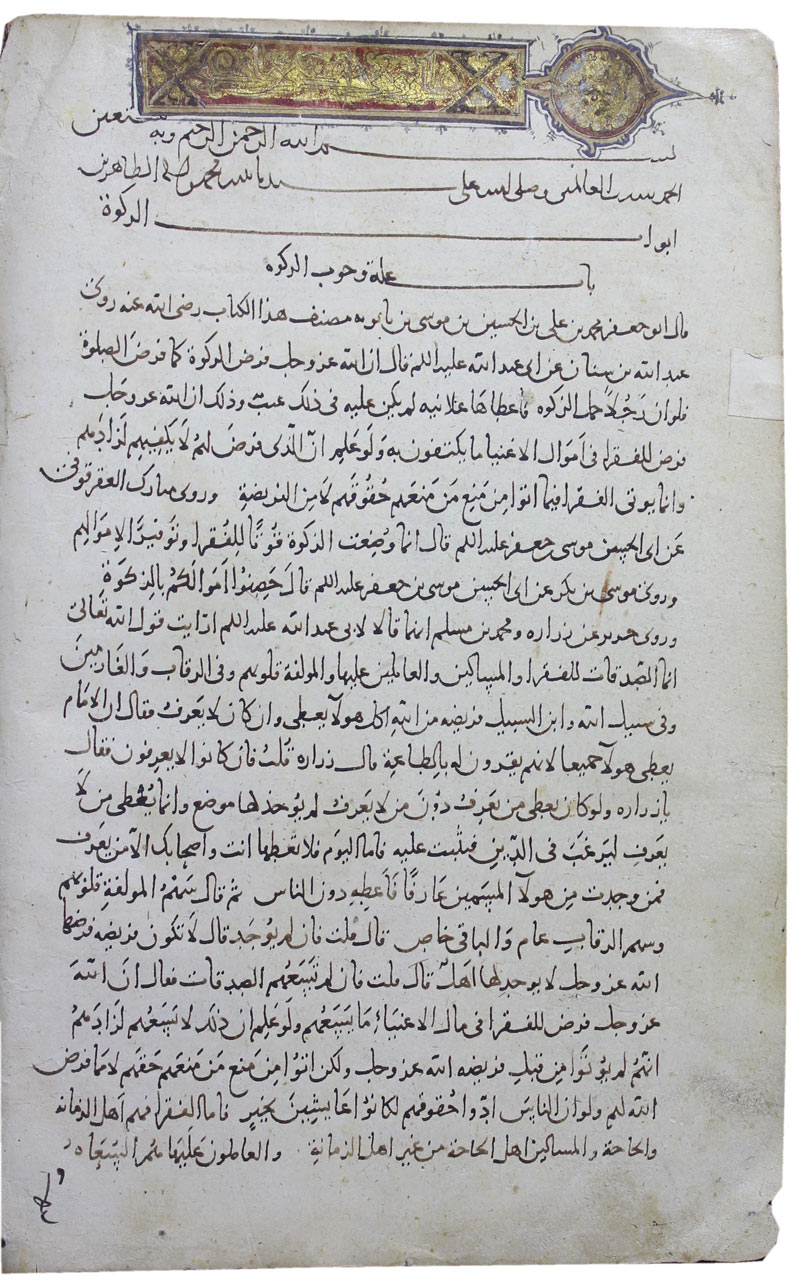 بسم الله الرحمن الرحيم وبه نستعين
الحمد لله رب العالمين وصلى الله على سيدنا محمد وآله الطاهرين
ابواب الزكوة
باب علة وجوب الزكوة
قال ابو جعفر محمد بن على بن الحسين بن موسى بن بابويه مصنف هذا الكتاب رضى الله عنه روى
عبد الله بن سنان عن ابى عبد الله عليه السلم قال ان الله عز وجل فرض الزكوة كما فرض الصلوة
فلو ان رجلا حمل الزكوه فاعطاها علانيه لم يكن عليه فى ذلك عيب وذلك ان الله عز وجل
فرض للفقرا فى اموال الاغنيا ما يكتفون به ولو علم ان الذى فرض لهم لا يكفيهم لزادهم
وانما يوتى الفقرا فيما اتوا من منع من منعهم حقوقهم لا من الفريضة وروى مبارك العقرقوفى
عن ابى الحسن موسى بن جعفر عليه السلم قال انما وضعت الزكوة قوتا للفقرا وتوفيرا لاموالهم
وروى موسى بن بكر عن ابى الحسن موسى بن جعفر عليه السلم قال حصنوا اموالكم بالزكوة
وروى حريز عن زراره ومحمد بن مسلم انهما قالا لابى عبد الله عليه السلم ارايت قول الله تعالى
انما الصدقات للفقرا والمساكين والعاملين عليها والمولفة قلوبهم وفى الرقاب والغارمين
وفى سبيل الله وابن السبيل فريضه من الله اكل هولا يعطى وان كان لا يعرف فقال ان الامام
يعطى هولا جميعا لانهم يقرون له بالطاعة قال زراره قلت فان كانوا لا يعرفون فقال
يا زراره ولو كان يعطى من يعرف دون من لا يعرف لم يوجد لها موضع وانما يعطى من لا
يعرف ليرغب فى الدين فيثبت عليه فاما اليوم فلا تعطها انت واصحابك الا من يعرف
فمن وجدت من هولا المسلمين عارفا فاعطه دون الناس ثم قال سهم المولفة قلوبهم
وسهم الرقاب عام والباقى خاص قال قلت فان لم يوجد قال لا تكون فريضه فرضها
الله عز وجل لا يوجد لها اهل قال قلت فان لم تسعهم الصدقات فقال ان الله
عز وجل فرض للفقرا فى مال الاغنياء ما يسعهم ولو علم ان ذلك لا يسعهم لزادهم
انهم لم يوتوا من قبل فريضه الله عز وجل ولكن اتوا من منع من منعهم حقهم لا مما فرض
الله لهم ولو ان الناس ادوا حقوقهم لكانوا عايشين بخير فاما الفقرا فهم اهل الزمانه
والحاجة والمساكين اهل الحاجة من غير اهل الزمانة والعاملون عليها هم السعاه